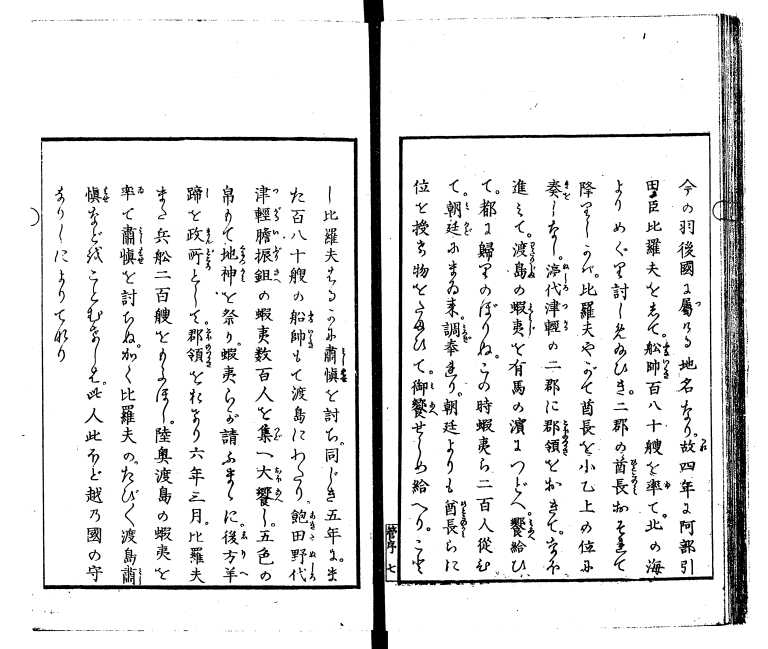 今の羽後國に屬る地名なり。故四年に阿部引
田臣比羅夫をして。舩帥百八十艘を率て。北の海
よりめぐり討しめ給ひき。二郡の酋長おそれて
降りしかば。比羅夫やがて酋長を小乙上の位に
奏しなし。渟代津輕の二郡に郡領をおきて。
進みて。渡島の蝦夷を有馬の濱につどへ。饗給ひ
て。都に歸りのぼりね。この時蝦夷ら二百人從ひ
て。朝廷にまゐ來。調奉れり。朝廷よりも酋長らに
位を授け物をたまひて。御饗せしめ給へり。
管序 七
し比羅夫 肅愼を討ち。同じき五年に。ま
た百八十艘の船帥もて渡島にわたり。飽田野代
津輕膽振鉏の蝦夷数百人を集へ大饗し。五色の
帛もて地神を祭り。蝦夷らが請ふまゝに。後方羊
蹄を政所として。郡領をおけり六年三月。比羅夫
また兵舩二百艘をよそほし。陸奥渡島の蝦夷を
率て肅愼を討ちね。かく比羅夫の。たびたび渡島肅
愼などをことむけしも。此人此ほど越乃國の守
なりしによりてなり